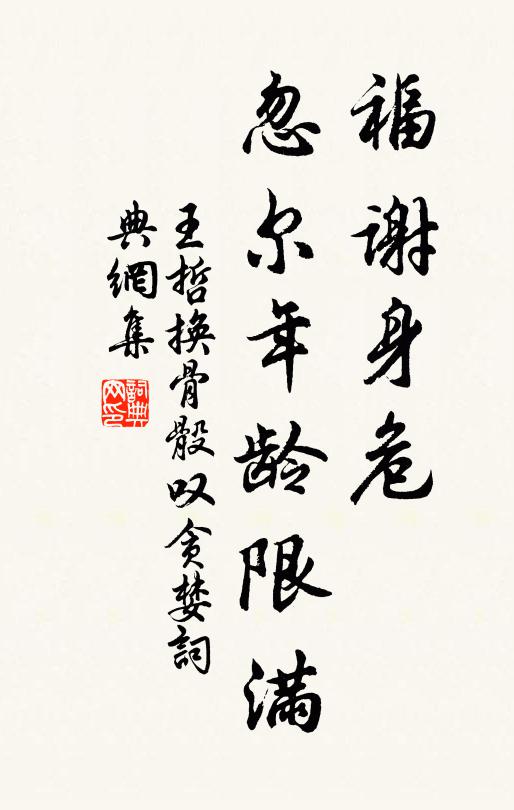 福谢身危
忽尔年龄限满
王哲换骨骰叹贪婪詞
典網集
詞典網印